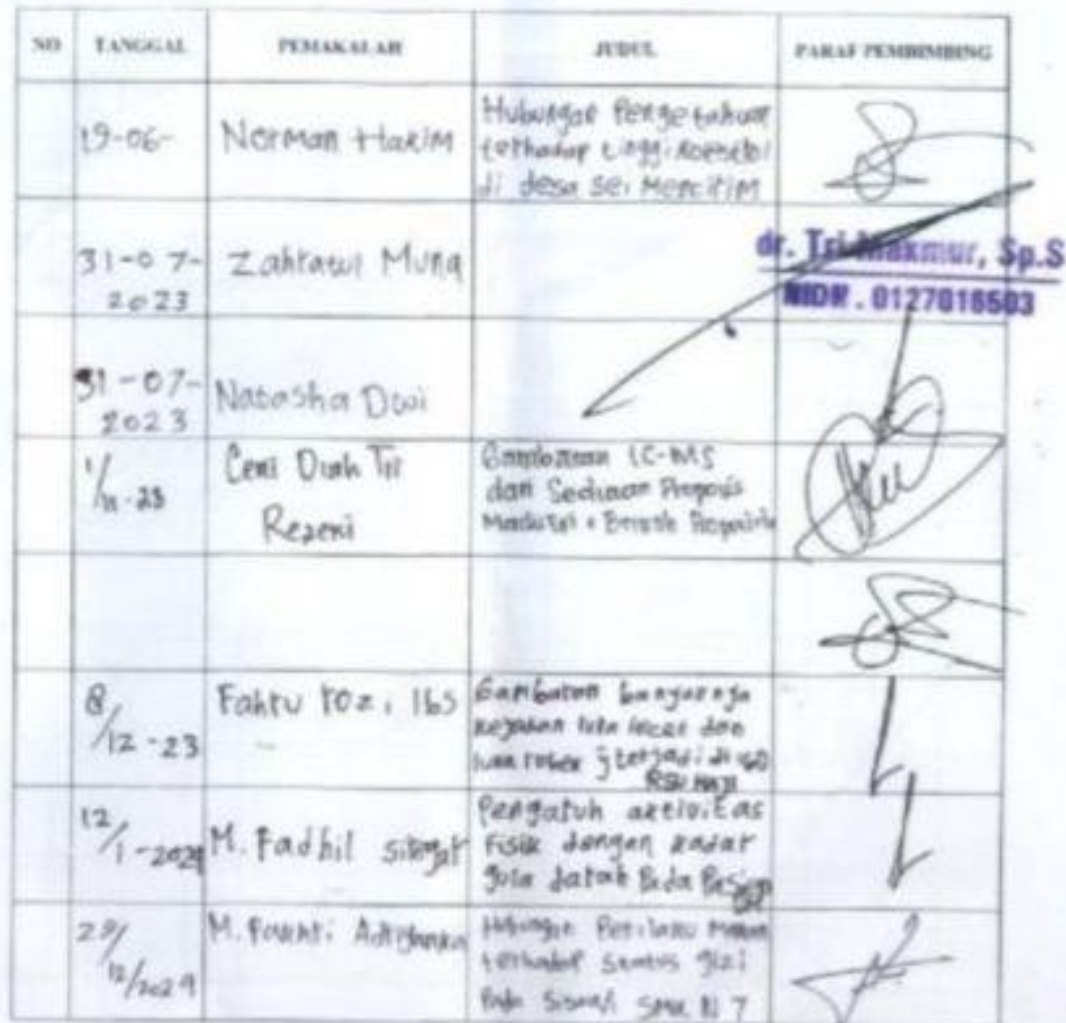 NO TANGGAL PEMAKALAH JUDUL PARAF PEMBIMBING
19-06- Norman Hakim
Hubungan Pengetahuan
terhadap tinggi
di desa Sei Mencirim
31-07-
2023
Zahratul Muna
dr. Tri Makmur, Sp.S
NIDN . 0127018503
31-07-
2023
Natasha Dwi
1/11-23
Ceni Diah Tri
Rezeni
Gambaran LC-MS
dan Sediaan Propolis
8/12-23
Fahru rozi lbs
Gambaran banyaknya
kejadian luka lecet dan
luka robek yg terjadi di IGD
RSU HAJI
12/1-2024
M. Fadhil siregar
Pengaruh aktivitas
Fisik dengan kadar
gula darah Pada Pasien
M. Fakhri
Hubungan Perilaku Makan
terhadap status gizi
Pada Siswa/i SMK N 7